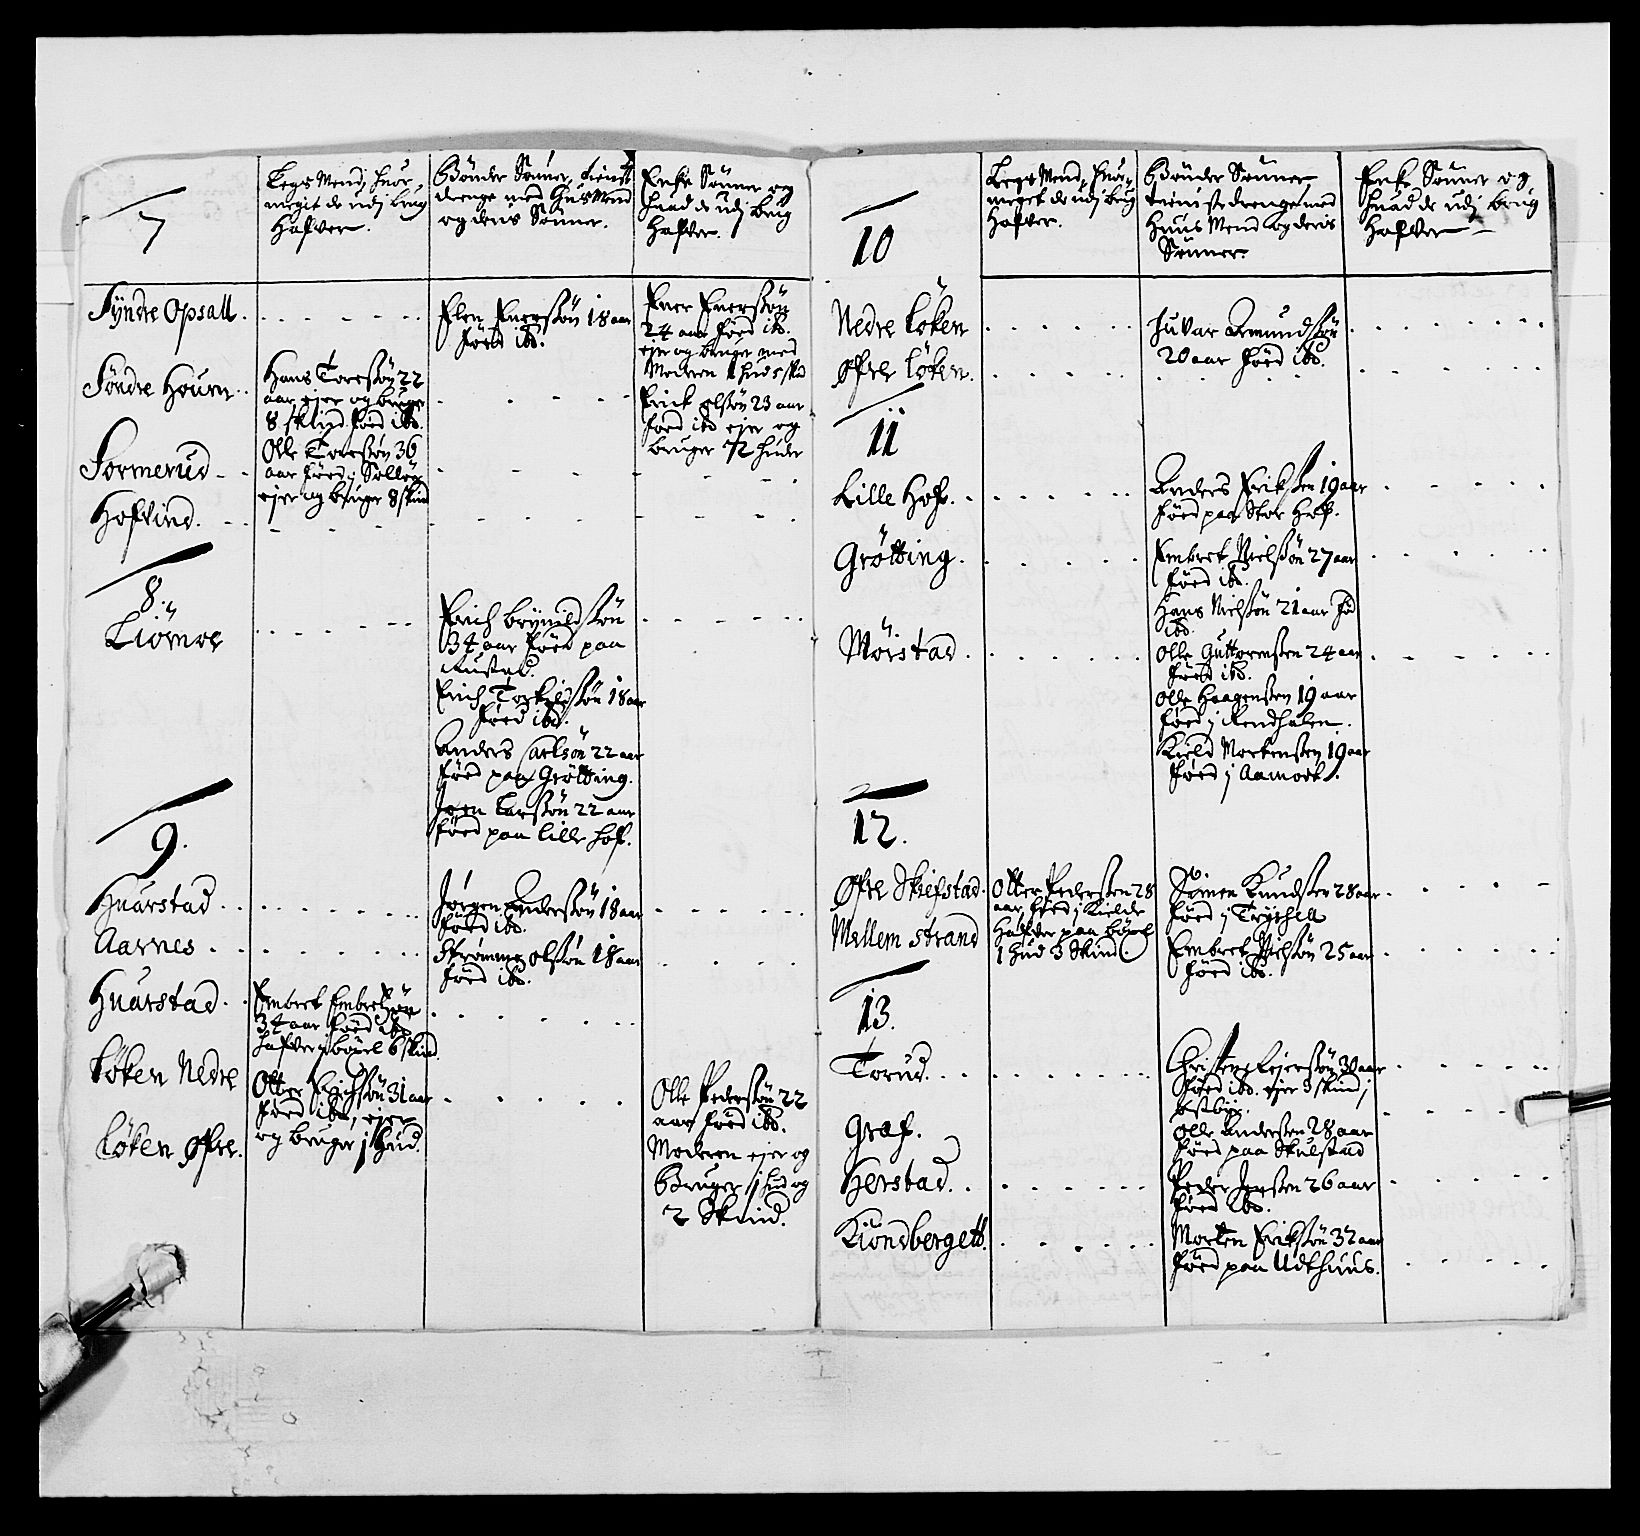 7
Legs Mend, huor
megit de udj brug
Hafver.
Bønder Sønner, tienist
drenge med Huus Mend
og deris Sønner.
Encke Sønner og
huad de udj brug
Hafver.
Syndre Opsall
Elen Enersøn 18 aar
føed ibd.
Ener Enersøn
24 aar føed ibd.
ejer og bruger med
Moderen 1 hud 5 skd
Søndre Houen
Hans Toresøn 22
aar, ejer og bruger
8 skind føed ibd.
Erick olsøn 23 aar
føed ibd ejer og
bruger 1/2 huder
Sormerud
Olle Toresøn 36
aar føed j Solløer
ejer og bruger 8 skind
Hofvind
8.
Liømoe
Erich brynildsøn
34 aar føed paa
Rustad.
Erich Torkildsøn 18 aar
føed ibd.
Anders Carlsøn 22 aar
føed paa Grøtting.
Joen Larsøn 22 aar
føed paa lille hof.
9.
Huarstad
Jørgen Andersøn 18 aar
føed ibd.
Aarnes
Strømmg olsøn 18 aar
føed ibd.
Huarstad
Embret Embretsøn
34 aar føed ibd
hafver j bøxel 6 skind
Løken Nedre
Otter Erichsøn 31 aar
føed ibd, ejer
og bruger j Hud.
Olle Pedersøn 22
aar føed ibd.
Moderen ejer og
Bruger j hud og
2 Skind.
Løken Øfre.
10
Legs Mend, huor
meget de udj brug
hafver.
Bønder Sønner
tieniste drenge med
Huus Mend og deris
Sønner.
Encke Sønner og
huad de udj brug
Hafver
Nedre Løken
Juvar Amundsøn
20 aar føed ibd.
Øfre Løken
11
Lille Hof.
Anders Eriksen 19 aar
føed paa Stor Hof.
Grøtting
Embret Nielsøn 27 aar
føed ibd.
Hans Nielsøn 21 aar fød
ibd.
Mørstad
Olle Guttormsen 24 aar
føed ibd.
Olle Haagensen 19 aar
føed j Rendhalen.
Kield Mortensen 19 aar
føed j Aamodt.
12.
Øfre Skiefstad
Otter Pedersen 28
aar, føed j Kielde
Hafver paa bøxel
1 hud 3 Skind.
Simen Knudsen 28 aar
føed j Trychell
Mellem strand
Embret Nielsøn 25 aar
føed ibd.
13.
Torud
Christen Eejersøn 30 aar
føed ibd. ejer 3 skind j
østbye.
Graf.
Olle Andersen 28 aar
føed paa Skulstad
Herstad
Peder Jensen 26 aar
føed ibd.
Kiøndbergett
Morten Eriksøn 32 aar
føed paa Udthuus.